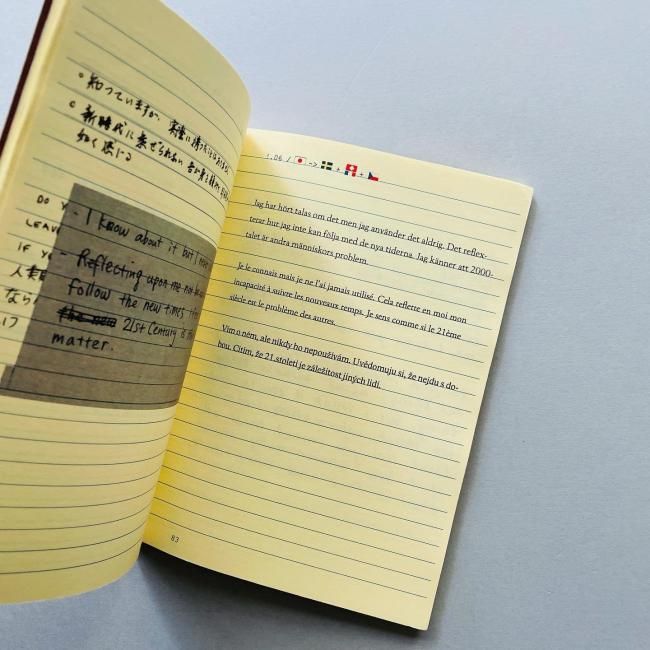 • 知っていますが、実際に
• 新時代に乗せられない
如く感じる
DO Y
LEAVE
IF YO
なら
- I know about it but I
- Reflecting upon
follow the new times,
21st Century is
matter.
1.06 / 🇯🇵 -> 🇸🇪 + 🇫🇷 + 🇨🇿
Jag har hört talas om det men jag använder det aldrig. Det reflex-
terar hur jag inte kan följa med de nya tiderna. Jag känner att 2000-
talet är andra människors problem.
Je le connais mais je ne l'ai jamais utilisé. Cela reflette en moi mon
incapacité à suivre les nouveaux temps. Je sens comme si le 21ème
siècle est le problème des autres.
Vím o něm, ale nikdy ho nepoužívám. Uvědomuju si, že nejdu s do-
bou. Cítím, že 21.století je záležitost jiných lidí.
83